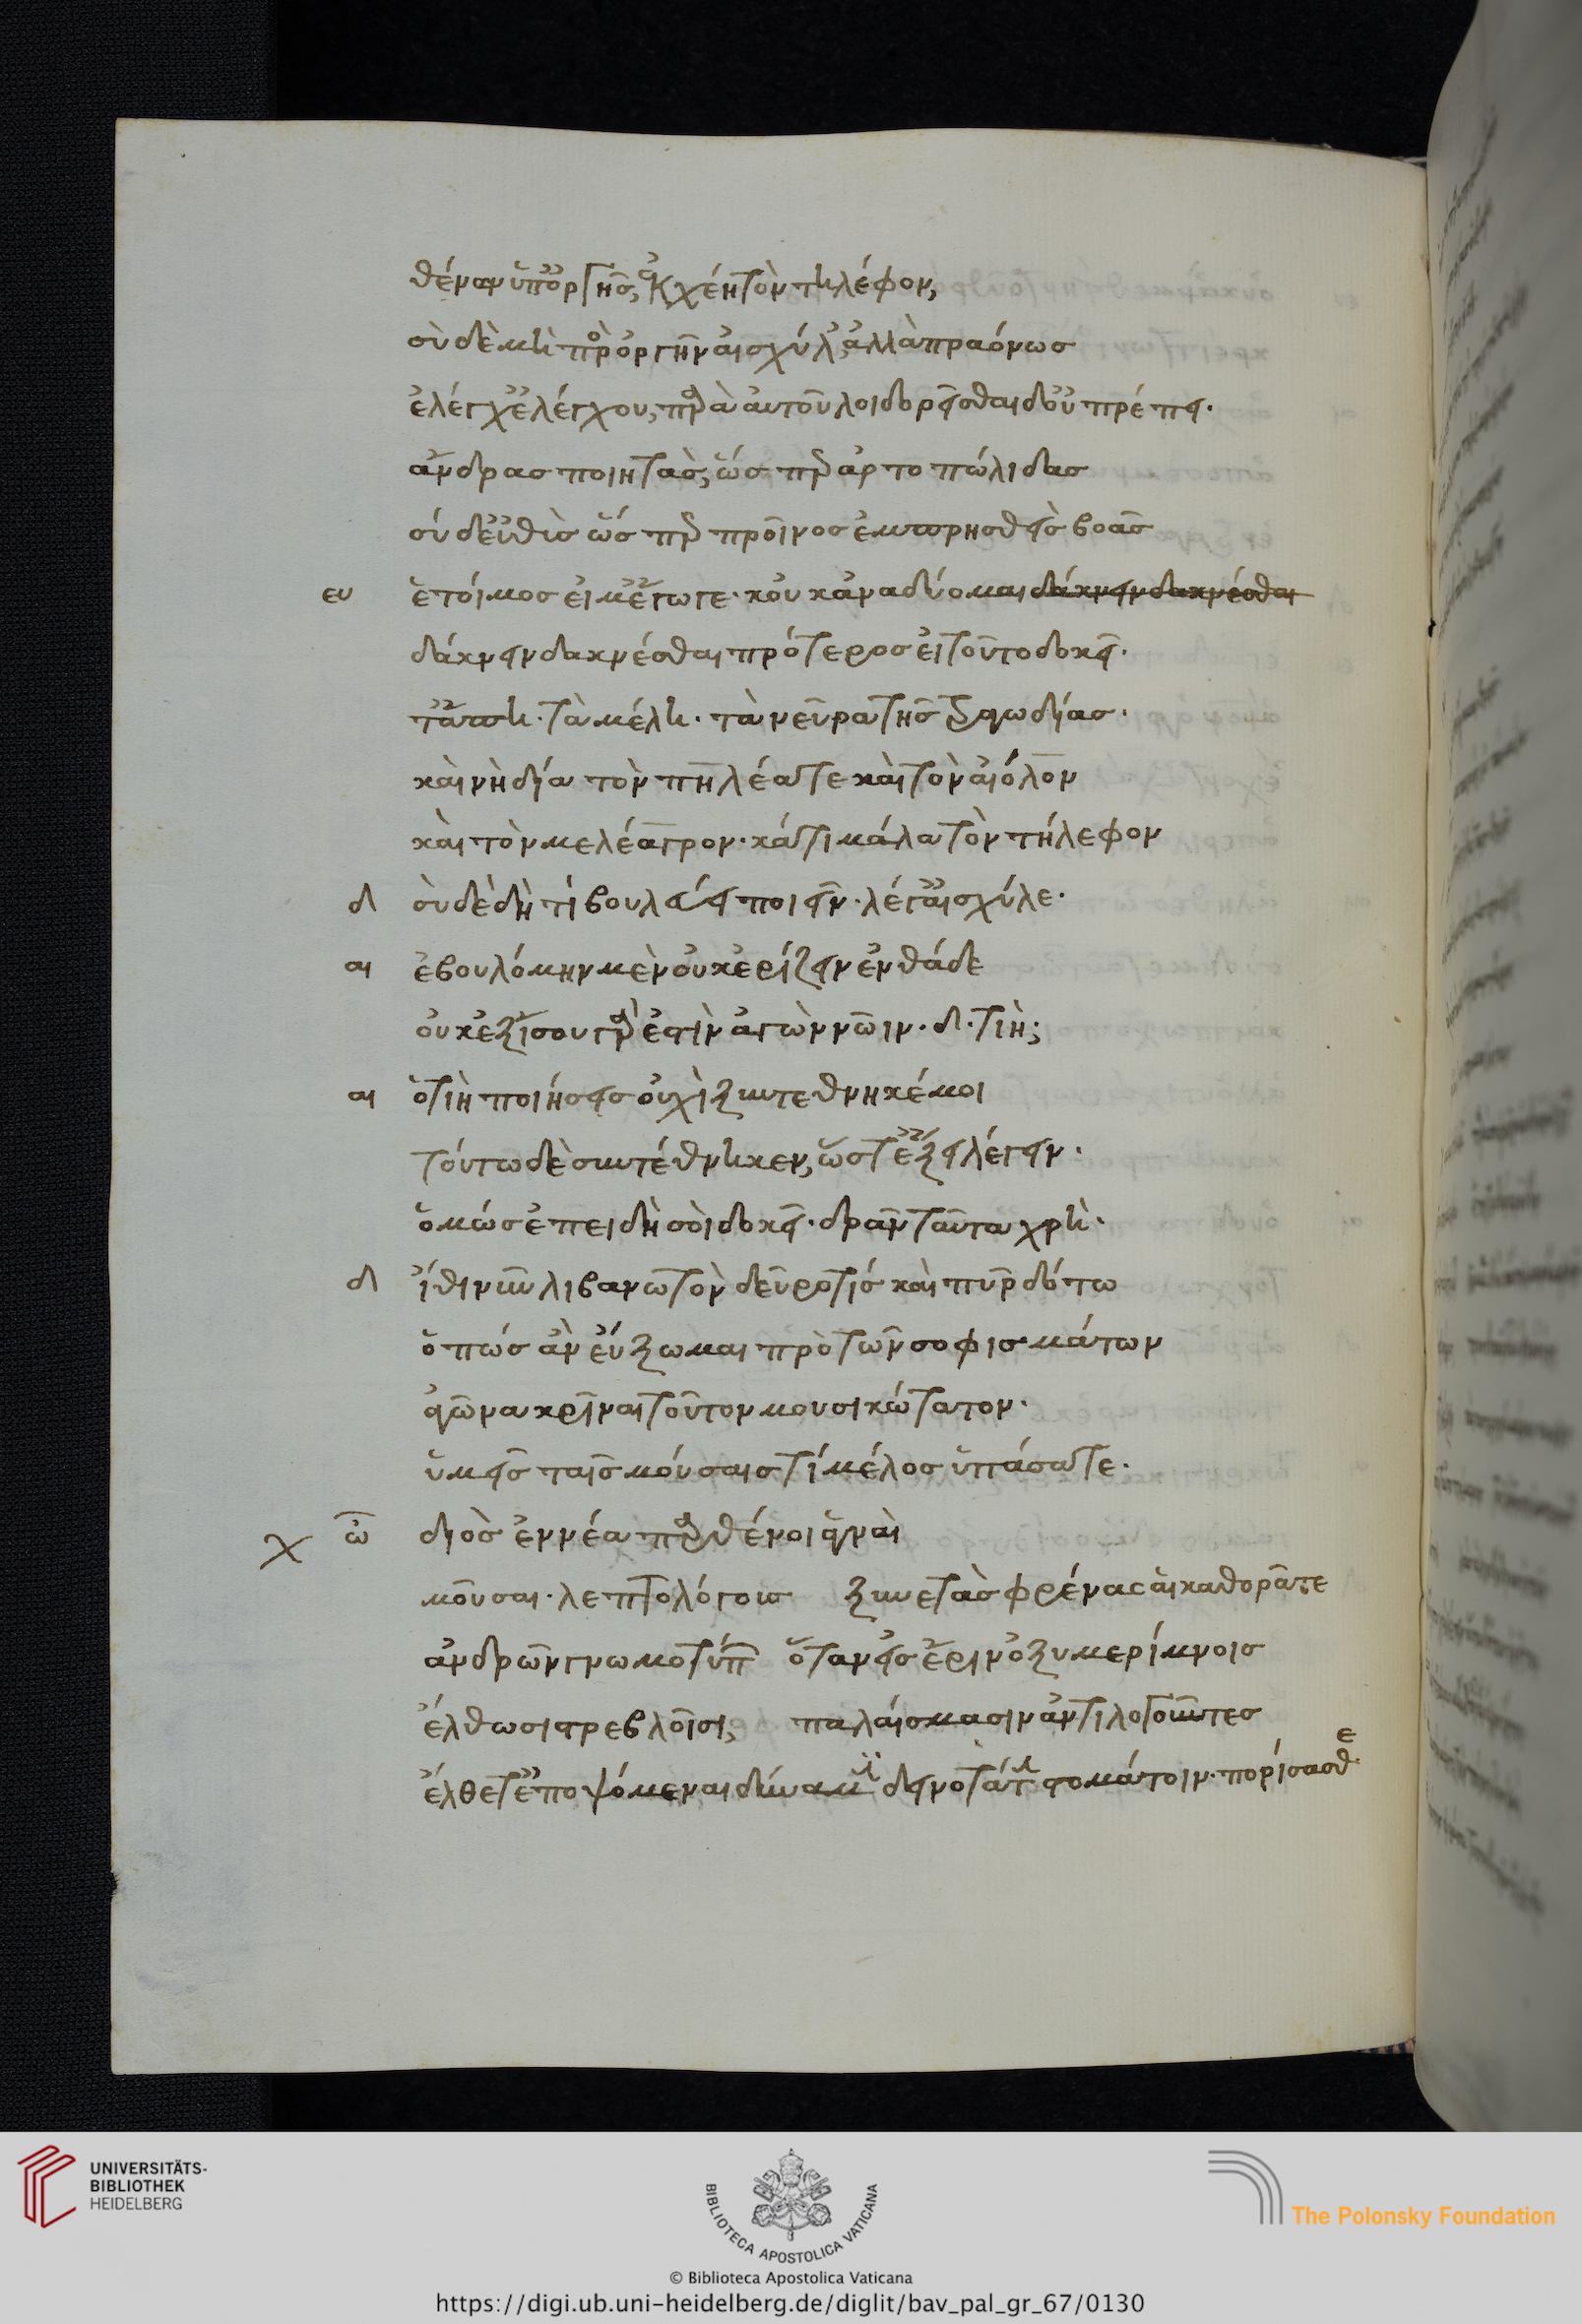 θένων ὑπ' ὀργῆς, ἐκχέῃ τὸν τηλέφον,
σὺ δὲ μὴ πρὸς ὀργὴν αἰσχύλ' ἀλλὰ πραόνως
ἐλέγχ' ἐλέγχου, παρὰ αὐτοῦ λοιδορεῖσθαι δ' οὐ πρέπει.
ἄνδρας ποιητὰς, ὥσπερ ἀρτοπώλιδας
σύ δ' εὐθὺς ὥσπερ πρῖνος ἐμπρησθεὶς βοᾶς
ευ ἑτοίμος εἰμ' ἔγωγε. κοὐκ ἀναδύομαι δάκνειν δακνέσθαι
δάκνειν δακνέσθαι πρότερος εἰ τοῦτο δοκεῖ.
τἄπη. τὰ μέλη. τὰ νεῦρα τῆς τραγωδίας.
καὶ νὴ δία τὸν πηλέα τε καὶ τὸν αἰόλον
καὶ τὸν μελέαγρον. κἄτι μάλα τὸν τήλεφον
δ σὺ δὲ δὴ τί βουλεύει ποιεῖν. λέγ' αἰσχύλε.
αι ἐβουλόμην μὲν οὐκ ἐρίζειν ἐνθάδε
οὐκ ἐξίσου γάρ ἐστὶν ἁγὼν νῶιν. δ. τιὴ;
αι ὁτιὴ ποιήσεις οὐχὶ ξυντεθνηκέ μοι
τούτω δὲ συντέθνηκεν, ὥστ' ἕξει λέγειν.
ὅμως ἐπειδὴ σοὶ δοκεῖ. δρᾶν ταῦτα χρὴ.
δ ἴθι νῦν λιβανωτὸν δεῦρο τίς καὶ πῦρ δότω
ὅπως ἂν εὔξωμαι πρὸ τῶν σοφισμάτων
ἀγῶνα κρῖναι τοῦτον μουσικώτατον.
ὑμεῖς ταῖς μούσαις τί μέλος ὑπάσατε.
χ ὦ διὸς ἐννέα παρθένοι ἁγναὶ
μοῦσαι. λεπτολόγους ξυνετὰς φρένας αἳ καθορᾶτε
ἀνδρῶν γνωμοτύπ ὅταν εἰς ἔριν ὀξυμερίμνοις
ἔλθωσι στρεβλοῖσι, παλαίσμασιν ἀντιλογοῦντες
ἔλθετ' ἐποψόμεναι δύναμιν δεινοτάτοιν στομάτοιν. πορίσασθε
UNIVERSITÄTS-
BIBLIOTHEK
HEIDELBERG
BIBLIOTECA APOSTOLICA VATICANA
The Polonsky Foundation
© Biblioteca Apostolica Vaticana
https://digi.ub.uni-heidelberg.de/diglit/bav_pal_gr_67/0130